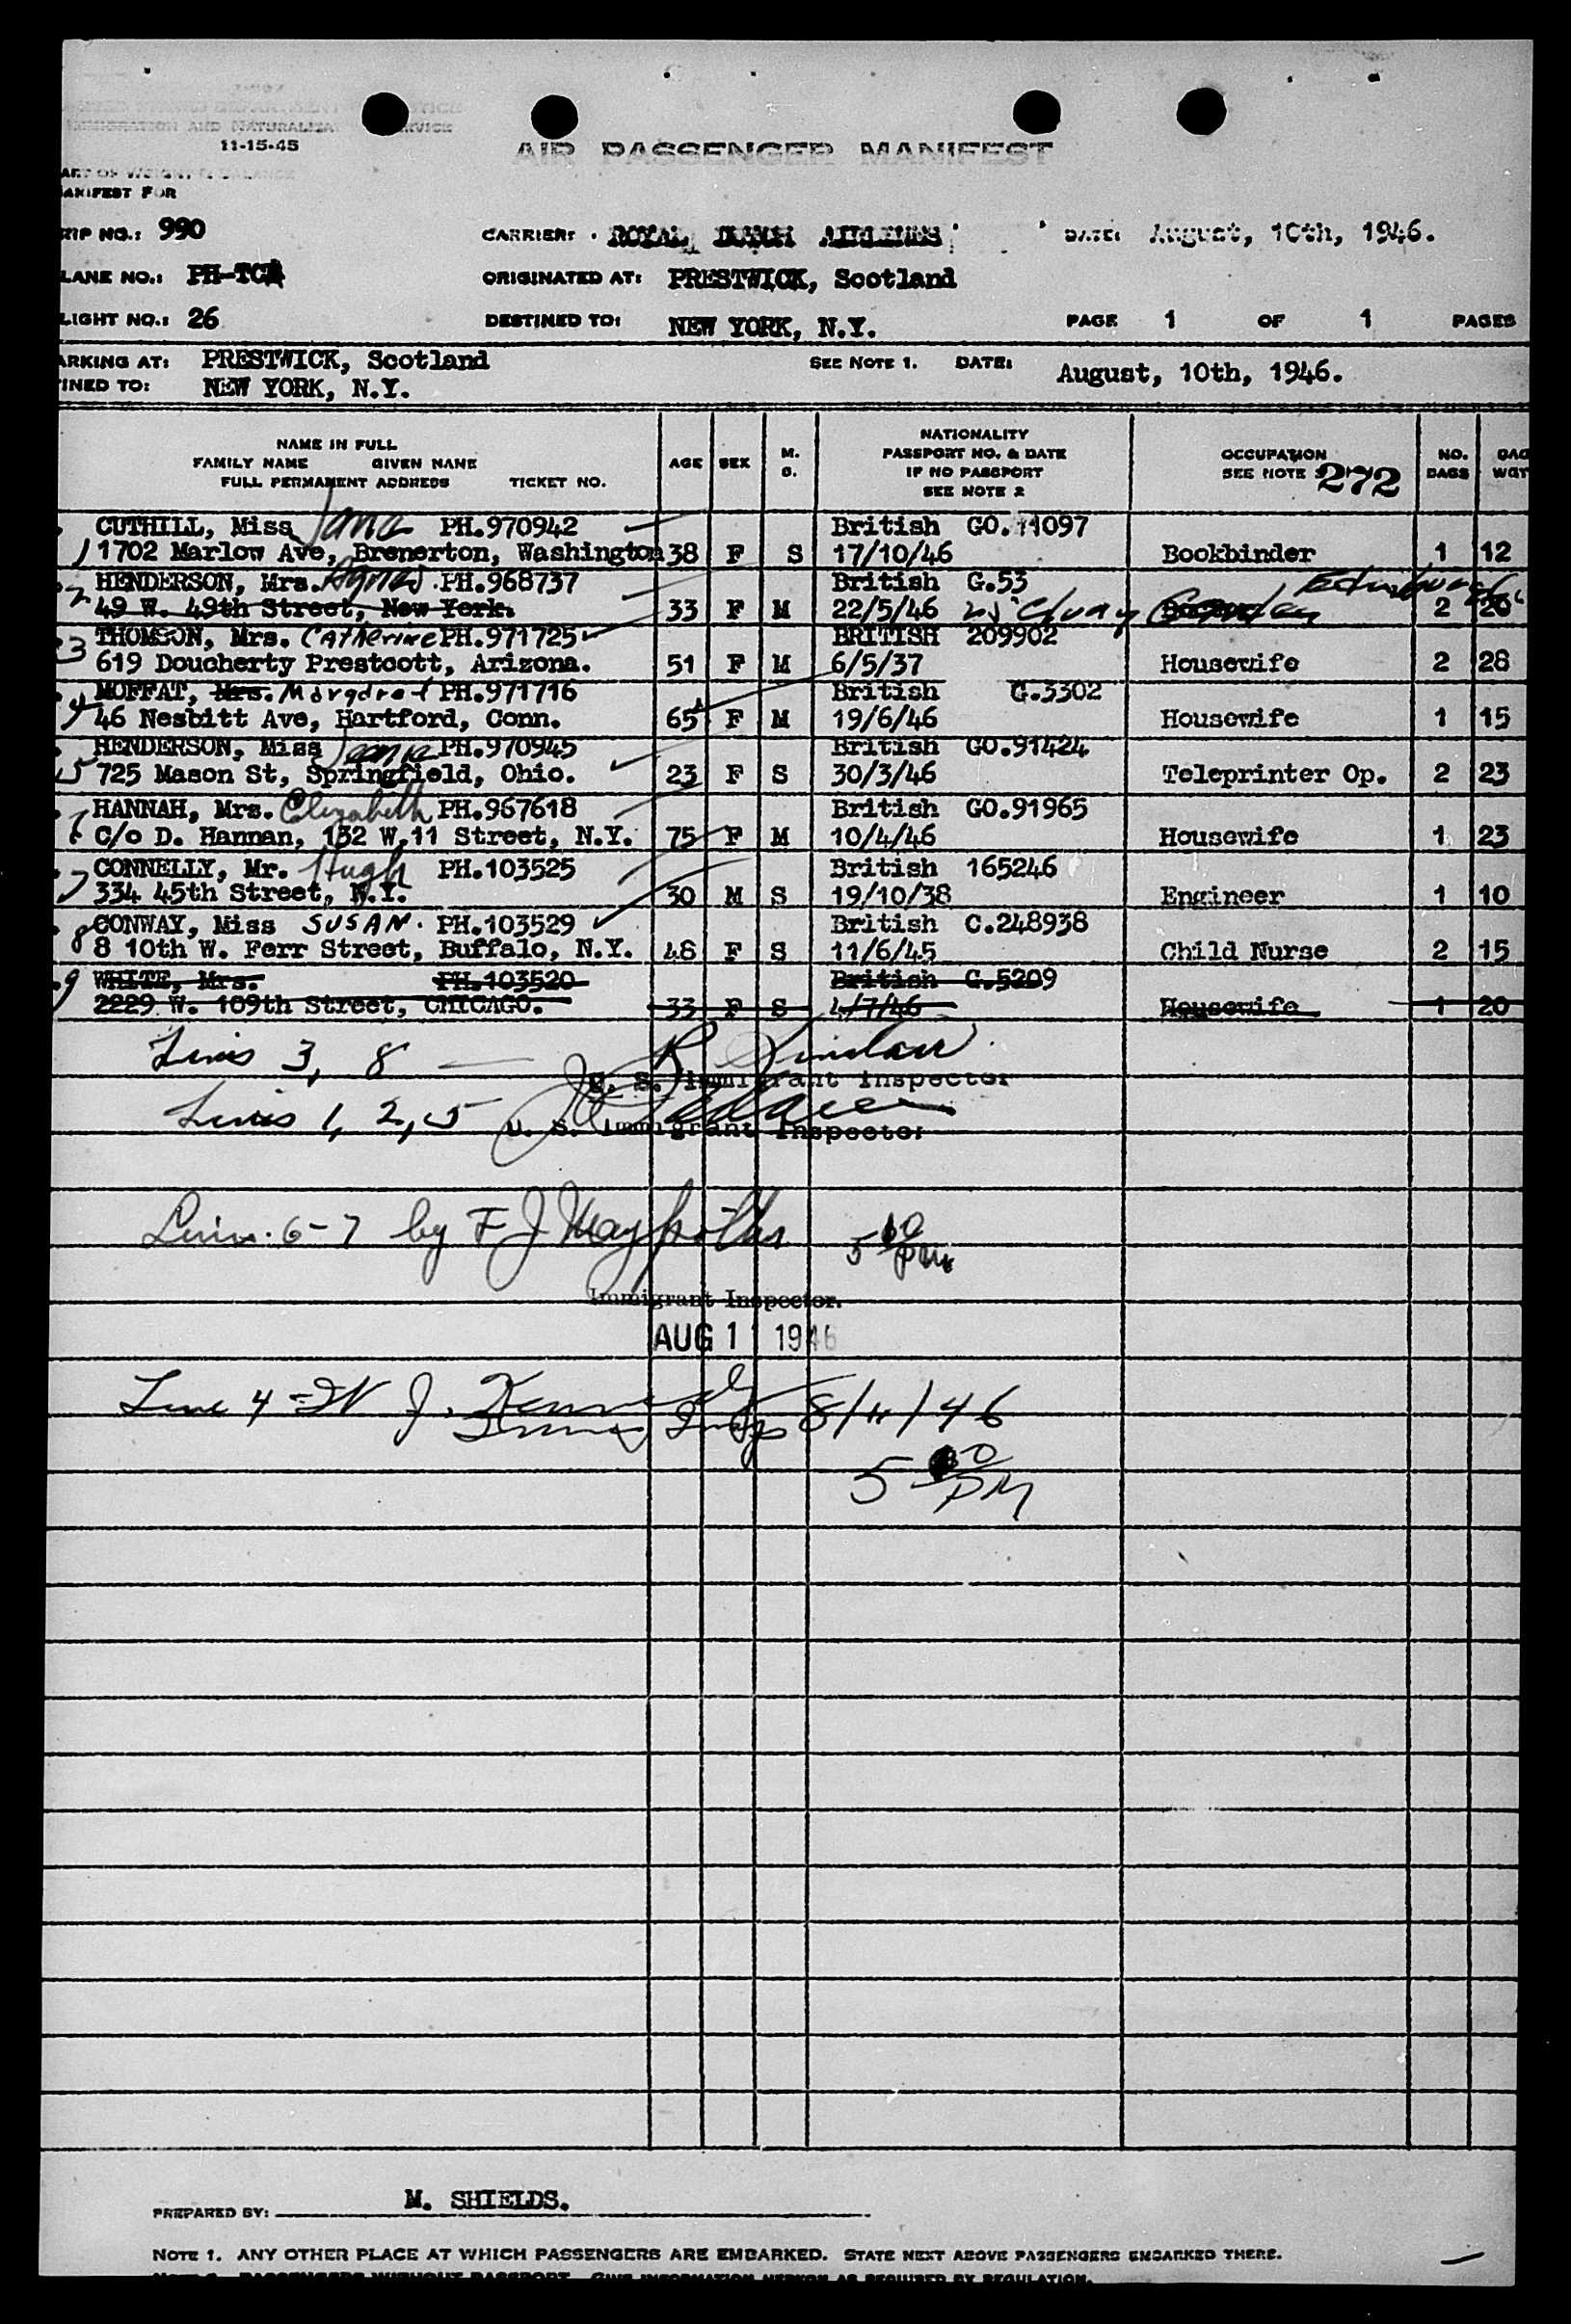 IMMIGRATION AND NATURALIZA RVICE
11-15-45
AIR PASSENGER MANIFEST
ART OF WEIGHT & BALANCE
ANIFEST FOR
RIP NO.: 990 CARRIER: ROYAL DUTCH AIRLINES DATE: August, 10th, 1946.
LANE NO.: PH-TCA ORIGINATED AT: PRESTWICK, Scotland
LIGHT NO.: 26 DESTINED TO: NEW YORK, N.Y. PAGE 1 OF 1 PAGES
ARKING AT: PRESTWICK, Scotland SEE NOTE 1. DATE: August, 10th, 1946.
INED TO: NEW YORK, N.Y.
NAME IN FULL
FAMILY NAME GIVEN NAME
FULL PERMANENT ADDRESS TICKET NO.
AGE SEX M. S.
NATIONALITY
PASSPORT NO. & DATE
IF NO PASSPORT
SEE NOTE 2
OCCUPATION
SEE NOTE 272
NO. BAGS
BAG WGT
CUTHILL, Miss Jane PH.970942 British GO.11097
1 1702 Marlow Ave, Bremerton, Washington 38 F S 17/10/46 Bookbinder 1 12
HENDERSON, Mrs. Agnes PH.968737 British G.53
2 49 W. 49th Street, New York. 33 F M 22/5/46 Edinburgh 2 20
THOMSON, Mrs. Catherine PH.971725 BRITISH 209902
3 619 Doucherty Prestcott, Arizona. 51 F M 6/5/37 Housewife 2 28
MOFFAT, Mrs. Margaret PH.971716 British G.3302
4 46 Nesbitt Ave, Hartford, Conn. 65 F M 19/6/46 Housewife 1 15
HENDERSON, Miss Jeanie PH.970945 British GO.91424
5 725 Mason St, Springfield, Ohio. 23 F S 30/3/46 Teleprinter Op. 2 23
HANNAH, Mrs. Elizabeth PH.967618 British GO.91965
C/o D. Hannan, 132 W.11 Street, N.Y. 75 F M 10/4/46 Housewife 1 23
CONNELLY, Mr. Hugh PH.103525 British 165246
7 334 45th Street, N.Y. 30 M S 19/10/38 Engineer 1 10
CONWAY, Miss SUSAN. PH.103529 British C.248938
8 8 10th W. Ferr Street, Buffalo, N.Y. 48 F S 11/6/45 Child Nurse 2 15
9 WHITE, Mrs. PH.103520 British G.5209
2229 W. 109th Street, CHICAGO. 33 F S 4/7/46 Housewife 1 20
Lines 3, 8 — R Sinclair
U. S. Immigrant Inspector
Lines 1, 2, 5
U. S. Immigrant Inspector
Lines 6-7 by F J 5 PM
Immigrant Inspector.
AUG 11 1946
Line 4 - W J. Kennedy
Immig Insp 8/11/46
5 PM
PREPARED BY: M. SHIELDS.
NOTE 1. ANY OTHER PLACE AT WHICH PASSENGERS ARE EMBARKED. STATE NEXT ABOVE PASSENGERS EMBARKED THERE.
NOTE 2. PASSENGERS WITHOUT PASSPORT. GIVE INFORMATION HEREON AS REQUIRED BY REGULATION.